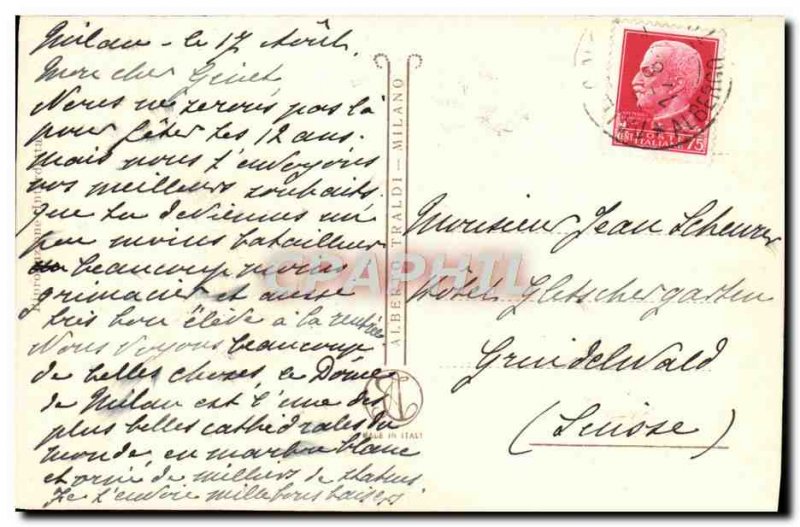 Milan - le 17 Août.
Mon cher Geinet
Nous ne serons pas là
pour fêter tes 12 ans.
Mais nous t'envoyons
nos meilleurs souhaits.
que tu deviennes un
peu moins batailleur
beaucoup moins
grimacier et aussi
très bon élève à la rentrée
Nous voyons beaucoup
de belles choses, ce Dôme
de Milan est l'une des
plus belles cathédrales du
monde, en marbre blanc
et orné de milliers de statues
Je t'envoie mille bons baisers
Riproduzione interdetta
ALBERTO TRALDI - MILANO
MADE IN ITALY
CPAPHIL
POSTE ITALIANE
75
ALBERGO
Monsieur Jean Scheurer
Hôtel Gletschergarten
Grindelwald
(Suisse)